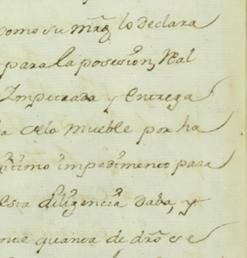 como su mrd lo declara
para la posesion, Real
Impetrada y entrega
mueble por ha
itimo impedimento para
esta diligencia daba, y
quanta de dro se